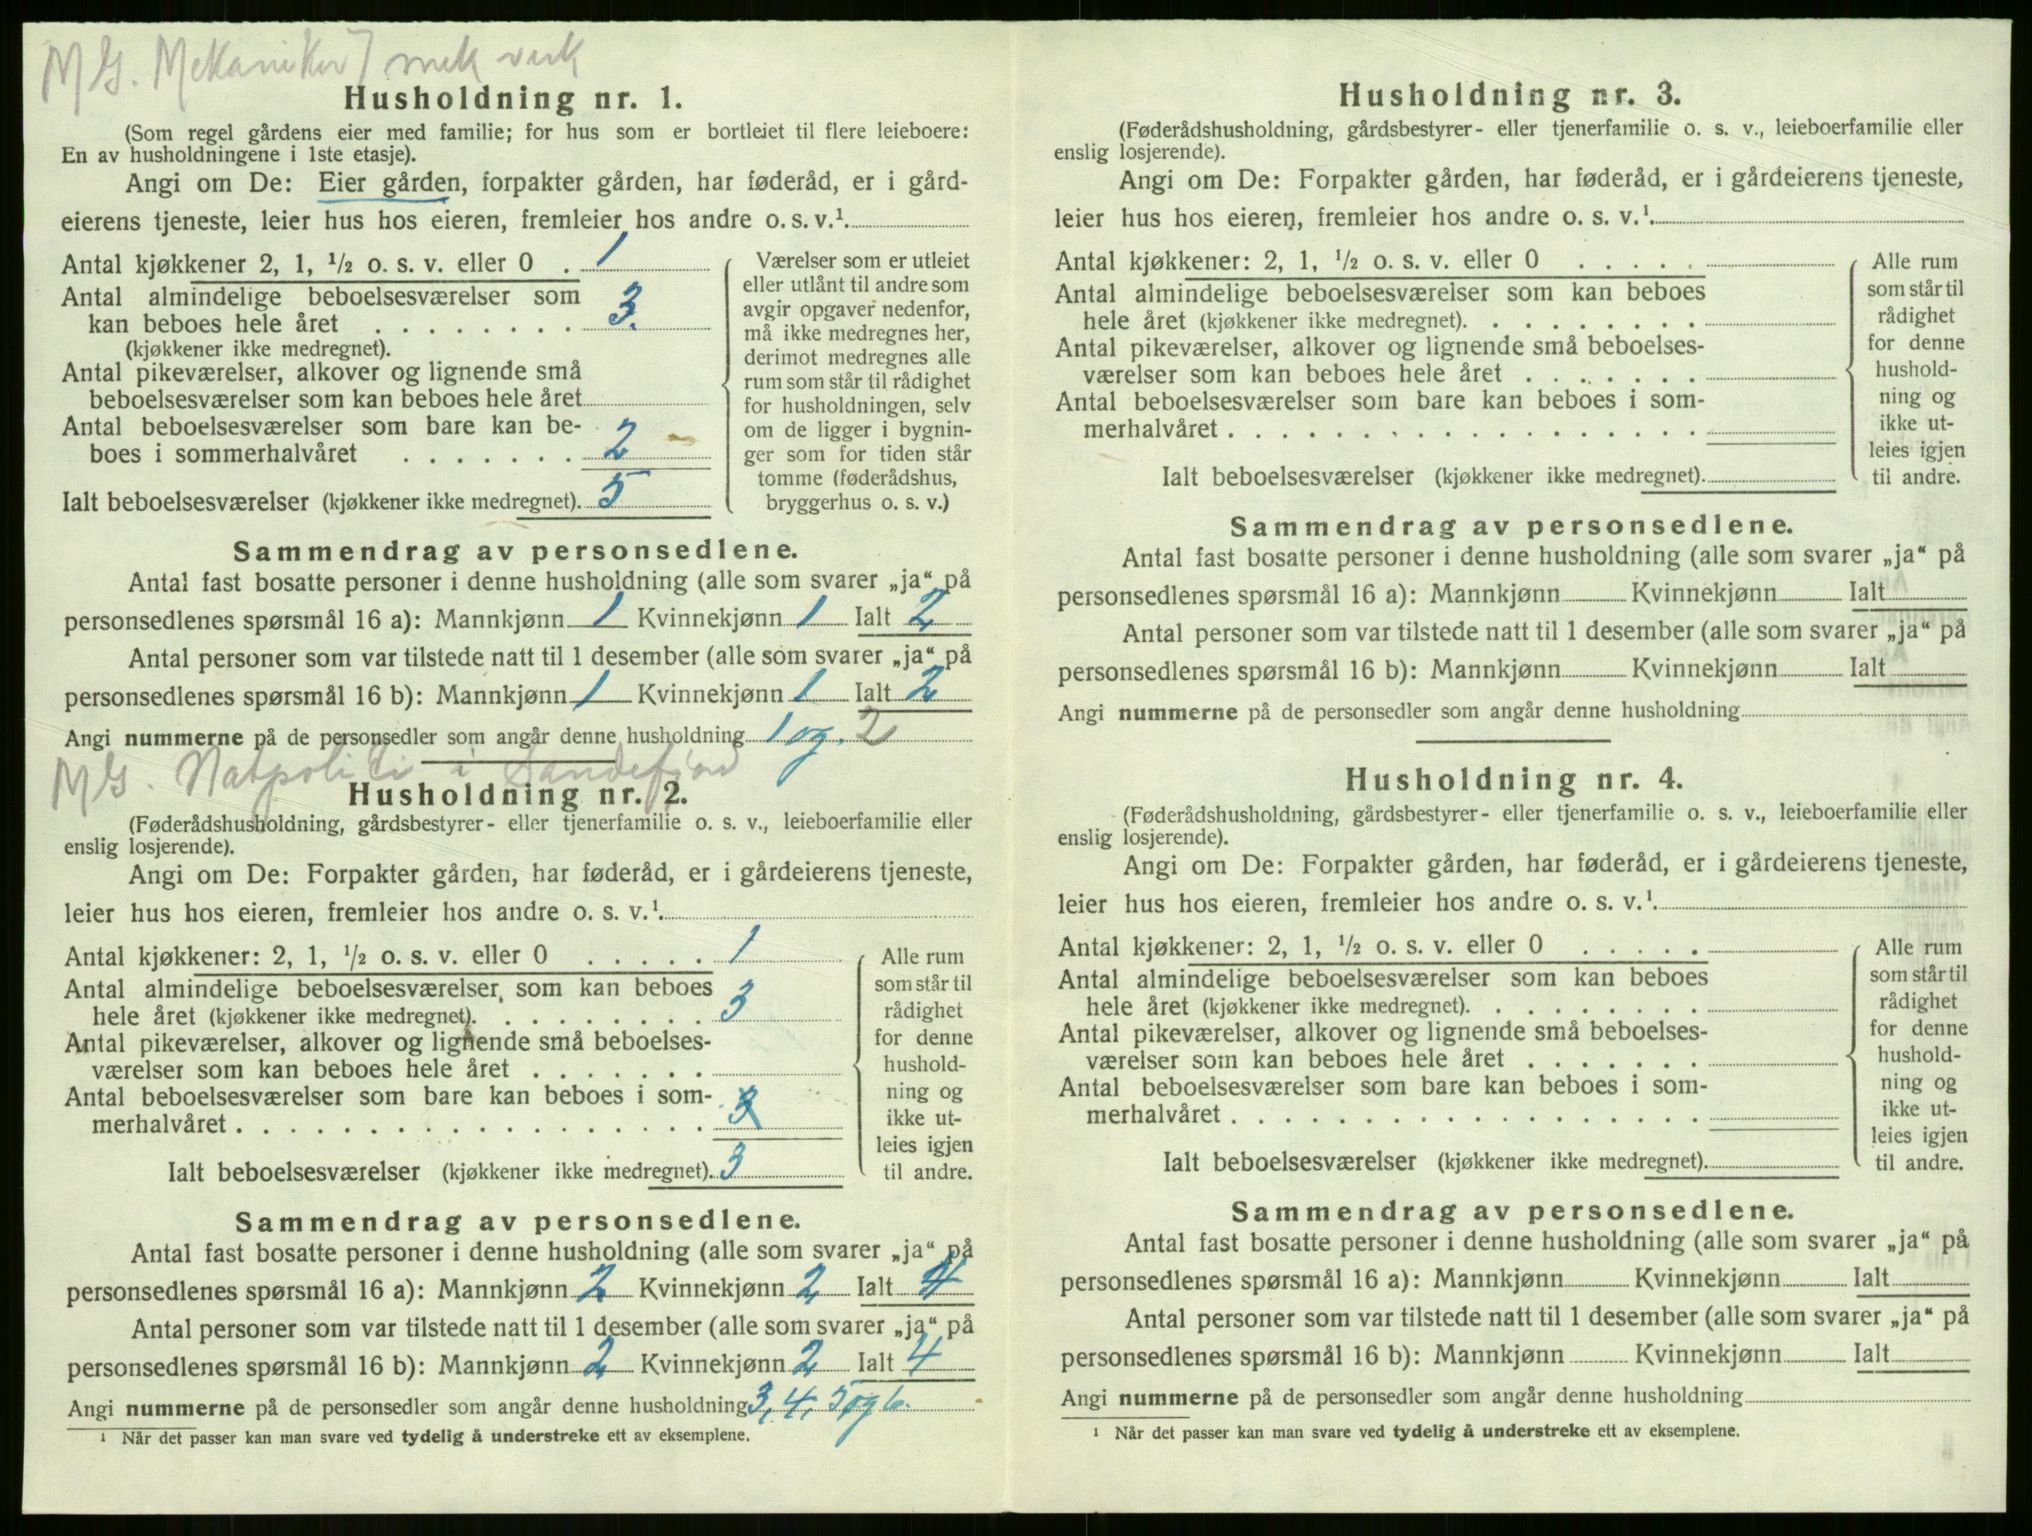 MG. Mekaniker / mek verk
Husholdning nr. 1.
(Som regel gårdens eier med familie; for hus som er bortleiet til flere leieboere:
En av husholdningene i 1ste etasje).
Angi om De: Eier gården, forpakter gården, har føderåd, er i gård-
eierens tjeneste, leier hus hos eieren, fremleier hos andre o. s. v.¹
Antal kjøkkener 2, 1, ½ o. s. v. eller 0 . 1
Antal almindelige beboelsesværelser som
kan beboes hele året . . . . . . . . 3.
(kjøkkener ikke medregnet).
Antal pikeværelser, alkover og lignende små
beboelsesværelser som kan beboes hele året
Antal beboelsesværelser som bare kan be-
boes i sommerhalvåret . . . . . . . 2
Ialt beboelsesværelser (kjøkkener ikke medregnet). 5
Værelser som er utleiet
eller utlånt til andre som
avgir opgaver nedenfor,
må ikke medregnes her,
derimot medregnes alle
rum som står til rådighet
for husholdningen, selv
om de ligger i bygnin-
ger som for tiden står
tomme (føderådshus,
bryggerhus o. s. v.)
Sammendrag av personsedlene.
Antal fast bosatte personer i denne husholdning (alle som svarer „ja“ på
personsedlenes spørsmål 16 a): Mannkjønn 1 Kvinnekjønn 1 Ialt 2
Antal personer som var tilstede natt til 1 desember (alle som svarer „ja“ på
personsedlenes spørsmål 16 b): Mannkjønn 1 Kvinnekjønn 1 Ialt 2
Angi nummerne på de personsedler som angår denne husholdning 1 og. 2
MG. Natpoliti i Sandefjord
Husholdning nr. 2.
(Føderådshusholdning, gårdsbestyrer- eller tjenerfamilie o. s. v., leieboerfamilie eller
enslig losjerende).
Angi om De: Forpakter gården, har føderåd, er i gårdeierens tjeneste,
leier hus hos eieren, fremleier hos andre o. s. v.¹.
Antal kjøkkener: 2, 1, ½ o. s. v. eller 0 . . . . . 1
Antal almindelige beboelsesværelser som kan beboes
hele året (kjøkkener ikke medregnet). . . . . . . . . 3
Antal pikeværelser, alkover og lignende små beboelses-
værelser som kan beboes hele året . . . . . . .
Antal beboelsesværelser som bare kan beboes i som-
merhalvåret . . . . . . . . . . . . . . . . . . 3
Ialt beboelsesværelser (kjøkkener ikke medregnet). 3
Alle rum
som står til
rådighet
for denne
hushold-
ning og
ikke ut-
leies igjen
til andre.
Sammendrag av personsedlene.
Antal fast bosatte personer i denne husholdning (alle som svarer „ja“ på
personsedlenes spørsmål 16 a): Mannkjønn 2 Kvinnekjønn 2 Ialt 4
Antal personer som var tilstede natt til 1 desember (alle som svarer „ja“ på
personsedlenes spørsmål 16 b): Mannkjønn 2 Kvinnekjønn 2 Ialt 4
Angi nummerne på de personsedler som angår denne husholdning 3, 4, 5 og 6.
¹ Når det passer kan man svare ved tydelig å understreke ett av eksemplene.
Husholdning nr. 3.
(Føderådshusholdning, gårdsbestyrer- eller tjenerfamilie o. s. v., leieboerfamilie eller
enslig losjerende).
Angi om De: Forpakter gården, har føderåd, er i gårdeierens tjeneste,
leier hus hos eieren, fremleier hos andre o. s. v.¹.
Antal kjøkkener: 2, 1, ½ o. s. v. eller 0 . . . . .
Antal almindelige beboelsesværelser som kan beboes
hele året (kjøkkener ikke medregnet). . . . . . . . .
Antal pikeværelser, alkover og lignende små beboelses-
værelser som kan beboes hele året . . . . . . .
Antal beboelsesværelser som bare kan beboes i som-
merhalvåret . . . . . . . . . . . . . . . . . .
Ialt beboelsesværelser (kjøkkener ikke medregnet).
Alle rum
som står til
rådighet
for denne
hushold-
ning og
ikke ut-
leies igjen
til andre.
Sammendrag av personsedlene.
Antal fast bosatte personer i denne husholdning (alle som svarer „ja“ på
personsedlenes spørsmål 16 a): Mannkjønn Kvinnekjønn Ialt
Antal personer som var tilstede natt til 1 desember (alle som svarer „ja“ på
personsedlenes spørsmål 16 b): Mannkjønn Kvinnekjønn Ialt
Angi nummerne på de personsedler som angår denne husholdning
Husholdning nr. 4.
(Føderådshusholdning, gårdsbestyrer- eller tjenerfamilie o. s. v., leieboerfamilie eller
enslig losjerende).
Angi om De: Forpakter gården, har føderåd, er i gårdeierens tjeneste,
leier hus hos eieren, fremleier hos andre o. s. v.¹.
Antal kjøkkener: 2, 1, ½ o. s. v. eller 0 . . . . .
Antal almindelige beboelsesværelser som kan beboes
hele året (kjøkkener ikke medregnet). . . . . . . . .
Antal pikeværelser, alkover og lignende små beboelses-
værelser som kan beboes hele året . . . . . . .
Antal beboelsesværelser som bare kan beboes i som-
merhalvåret . . . . . . . . . . . . . . . . . .
Ialt beboelsesværelser (kjøkkener ikke medregnet).
Alle rum
som står til
rådighet
for denne
hushold-
ning og
ikke ut-
leies igjen
til andre.
Sammendrag av personsedlene.
Antal fast bosatte personer i denne husholdning (alle som svarer „ja“ på
personsedlenes spørsmål 16 a): Mannkjønn Kvinnekjønn Ialt
Antal personer som var tilstede natt til 1 desember (alle som svarer „ja“ på
personsedlenes spørsmål 16 b): Mannkjønn Kvinnekjønn Ialt
Angi nummerne på de personsedler som angår denne husholdning
¹ Når det passer kan man svare ved tydelig å understreke ett av eksemplene.